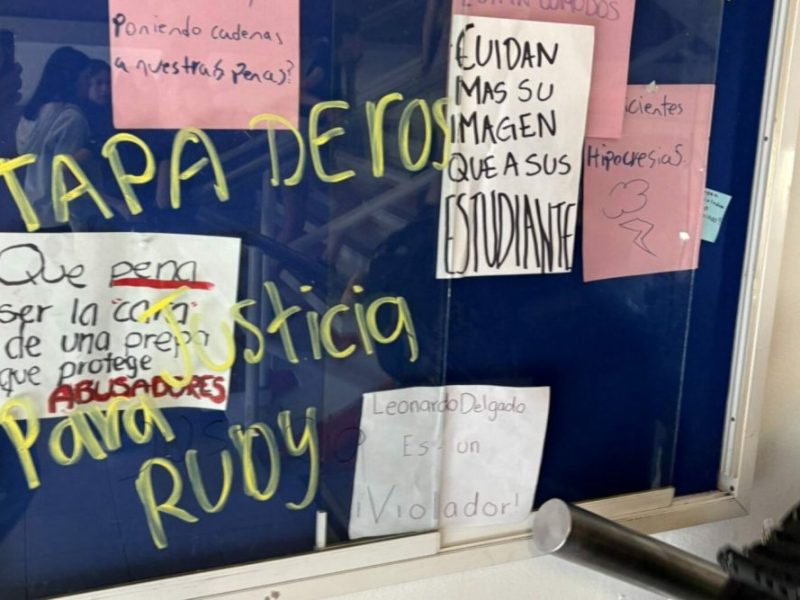 Poniendo cadenas
a nuestras penas?
ESTÁN CÓMODOS
CUIDAN
MAS SU
IMAGEN
QUE A SUS
ESTUDIANTE
icientes
Hipocresias.
TAPA DE ROS
Que pena
ser la "cara"
de una prepa
que protege
ABUSADORES
Justicia
Para
RUDY
Leonardo Delgado
Es un
¡Violador!